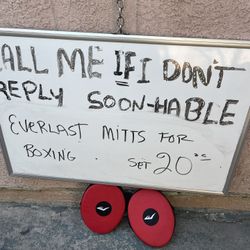 CALL ME IF I DON'T
REPLY SOON-HABLE
EVERLAST MITTS FOR
BOXING. SET 20°°